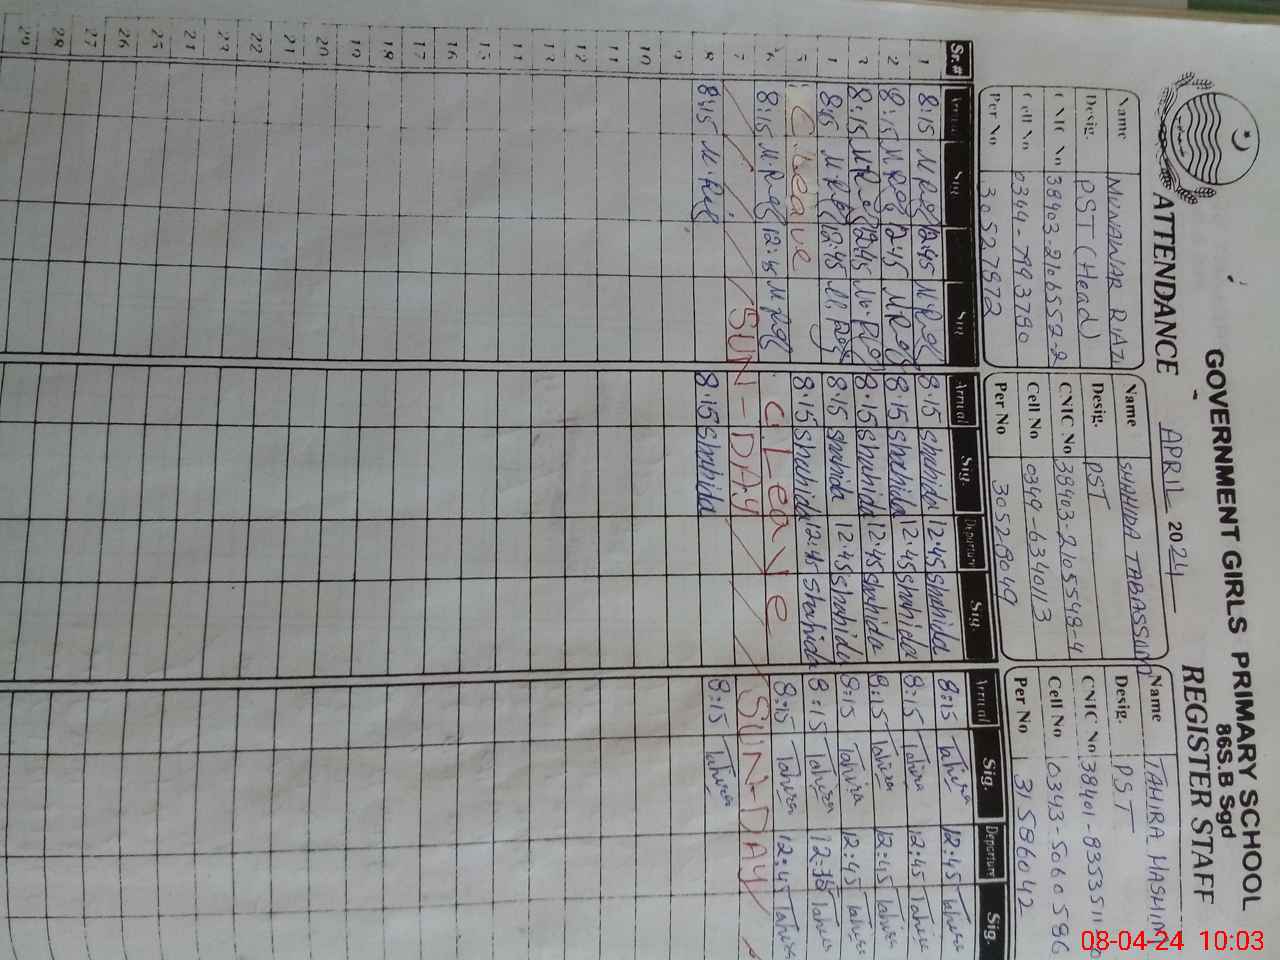 GOVERNMENT GIRLS PRIMARY SCHOOL
86S.B Sgd
ATTENDANCE APRIL 2024 REGISTER STAFF
Name MUNAWAR RIAZ
Desig. PST (Head)
CNIC No 38403-2106552-2
Cell No 0344-7993790
Per No 30527972
Name SHAHIDA TABASSUM
Desig. PST
CNIC No 38403-2105548-4
Cell No 0349-6340113
Per No
Name TAHIRA HASHIM
Desig. PST
CNIC No 38401-8353511
Cell No 0343-5060596
Per No 31586042
Sr.# Arrival Sig. Sig. Arrival Sig. Departure Sig. Arrival Sig. Departure Sig.
1 8:15 12:45 8:15 Shahida 12:45 Shahida 8:15 Tahira 12:45 Tahira
2 8:15 12:45 8:15 Shahida 12:45 Shahida 8:15 Tahira 12:45 Tahira
3 8:15 12:45 8:15 Shahida 12:45 Shahida 8:15 Tahira 12:45 Tahira
4 8:15 12:45 8:15 Shahida 12:45 Shahida 8:15 Tahira 12:45 Tahira
5 C.Leave 8:15 Shahida 12:45 Shahida 8:15 Tahira Tahira
6 8:15 12:45 C.Leave 8:15 Tahira 12:45 Tahira
7 SUN-DAY SUN-DAY
8 8:15 8:15 Shahida 8:15 Tahira
9
10
11
12
13
14
15
16
17
18
19
20
21
22
23
24
25
26
27
28
29
08-04-24 10:03